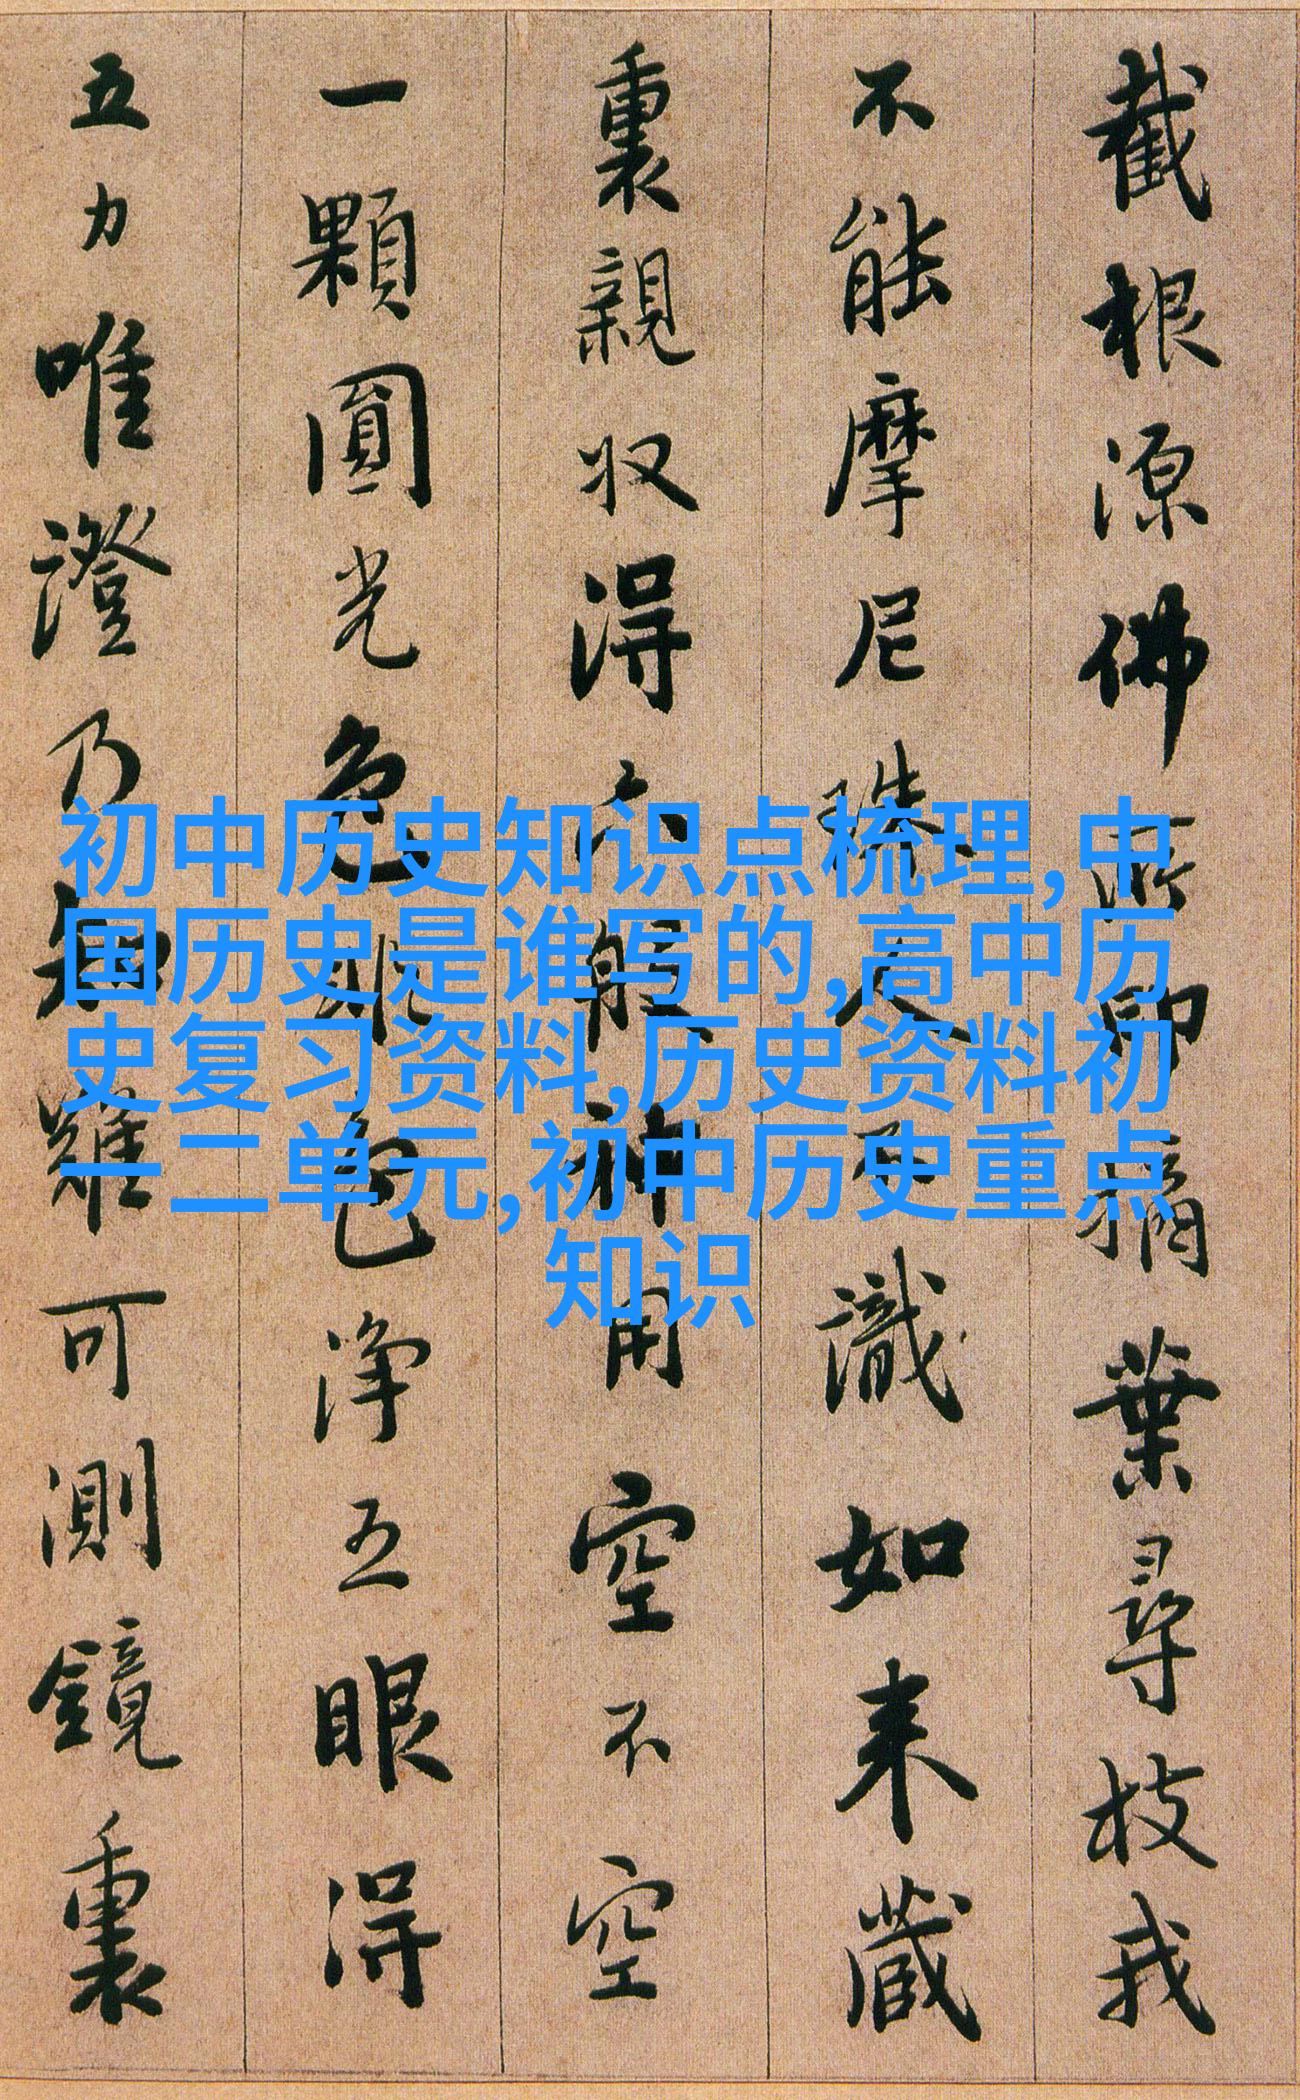 截根源佛所印摘葉尋枝我
不能摩尼珠人不識如来藏
裏親収得六般神用空不空
一顆圓光色非色淨五眼得
五力唯證乃知難可測鏡裏
初中历史知识点梳理,中
国历史是谁写的,高中历
史复习资料,历史资料初
一二单元,初中历史重点
知识